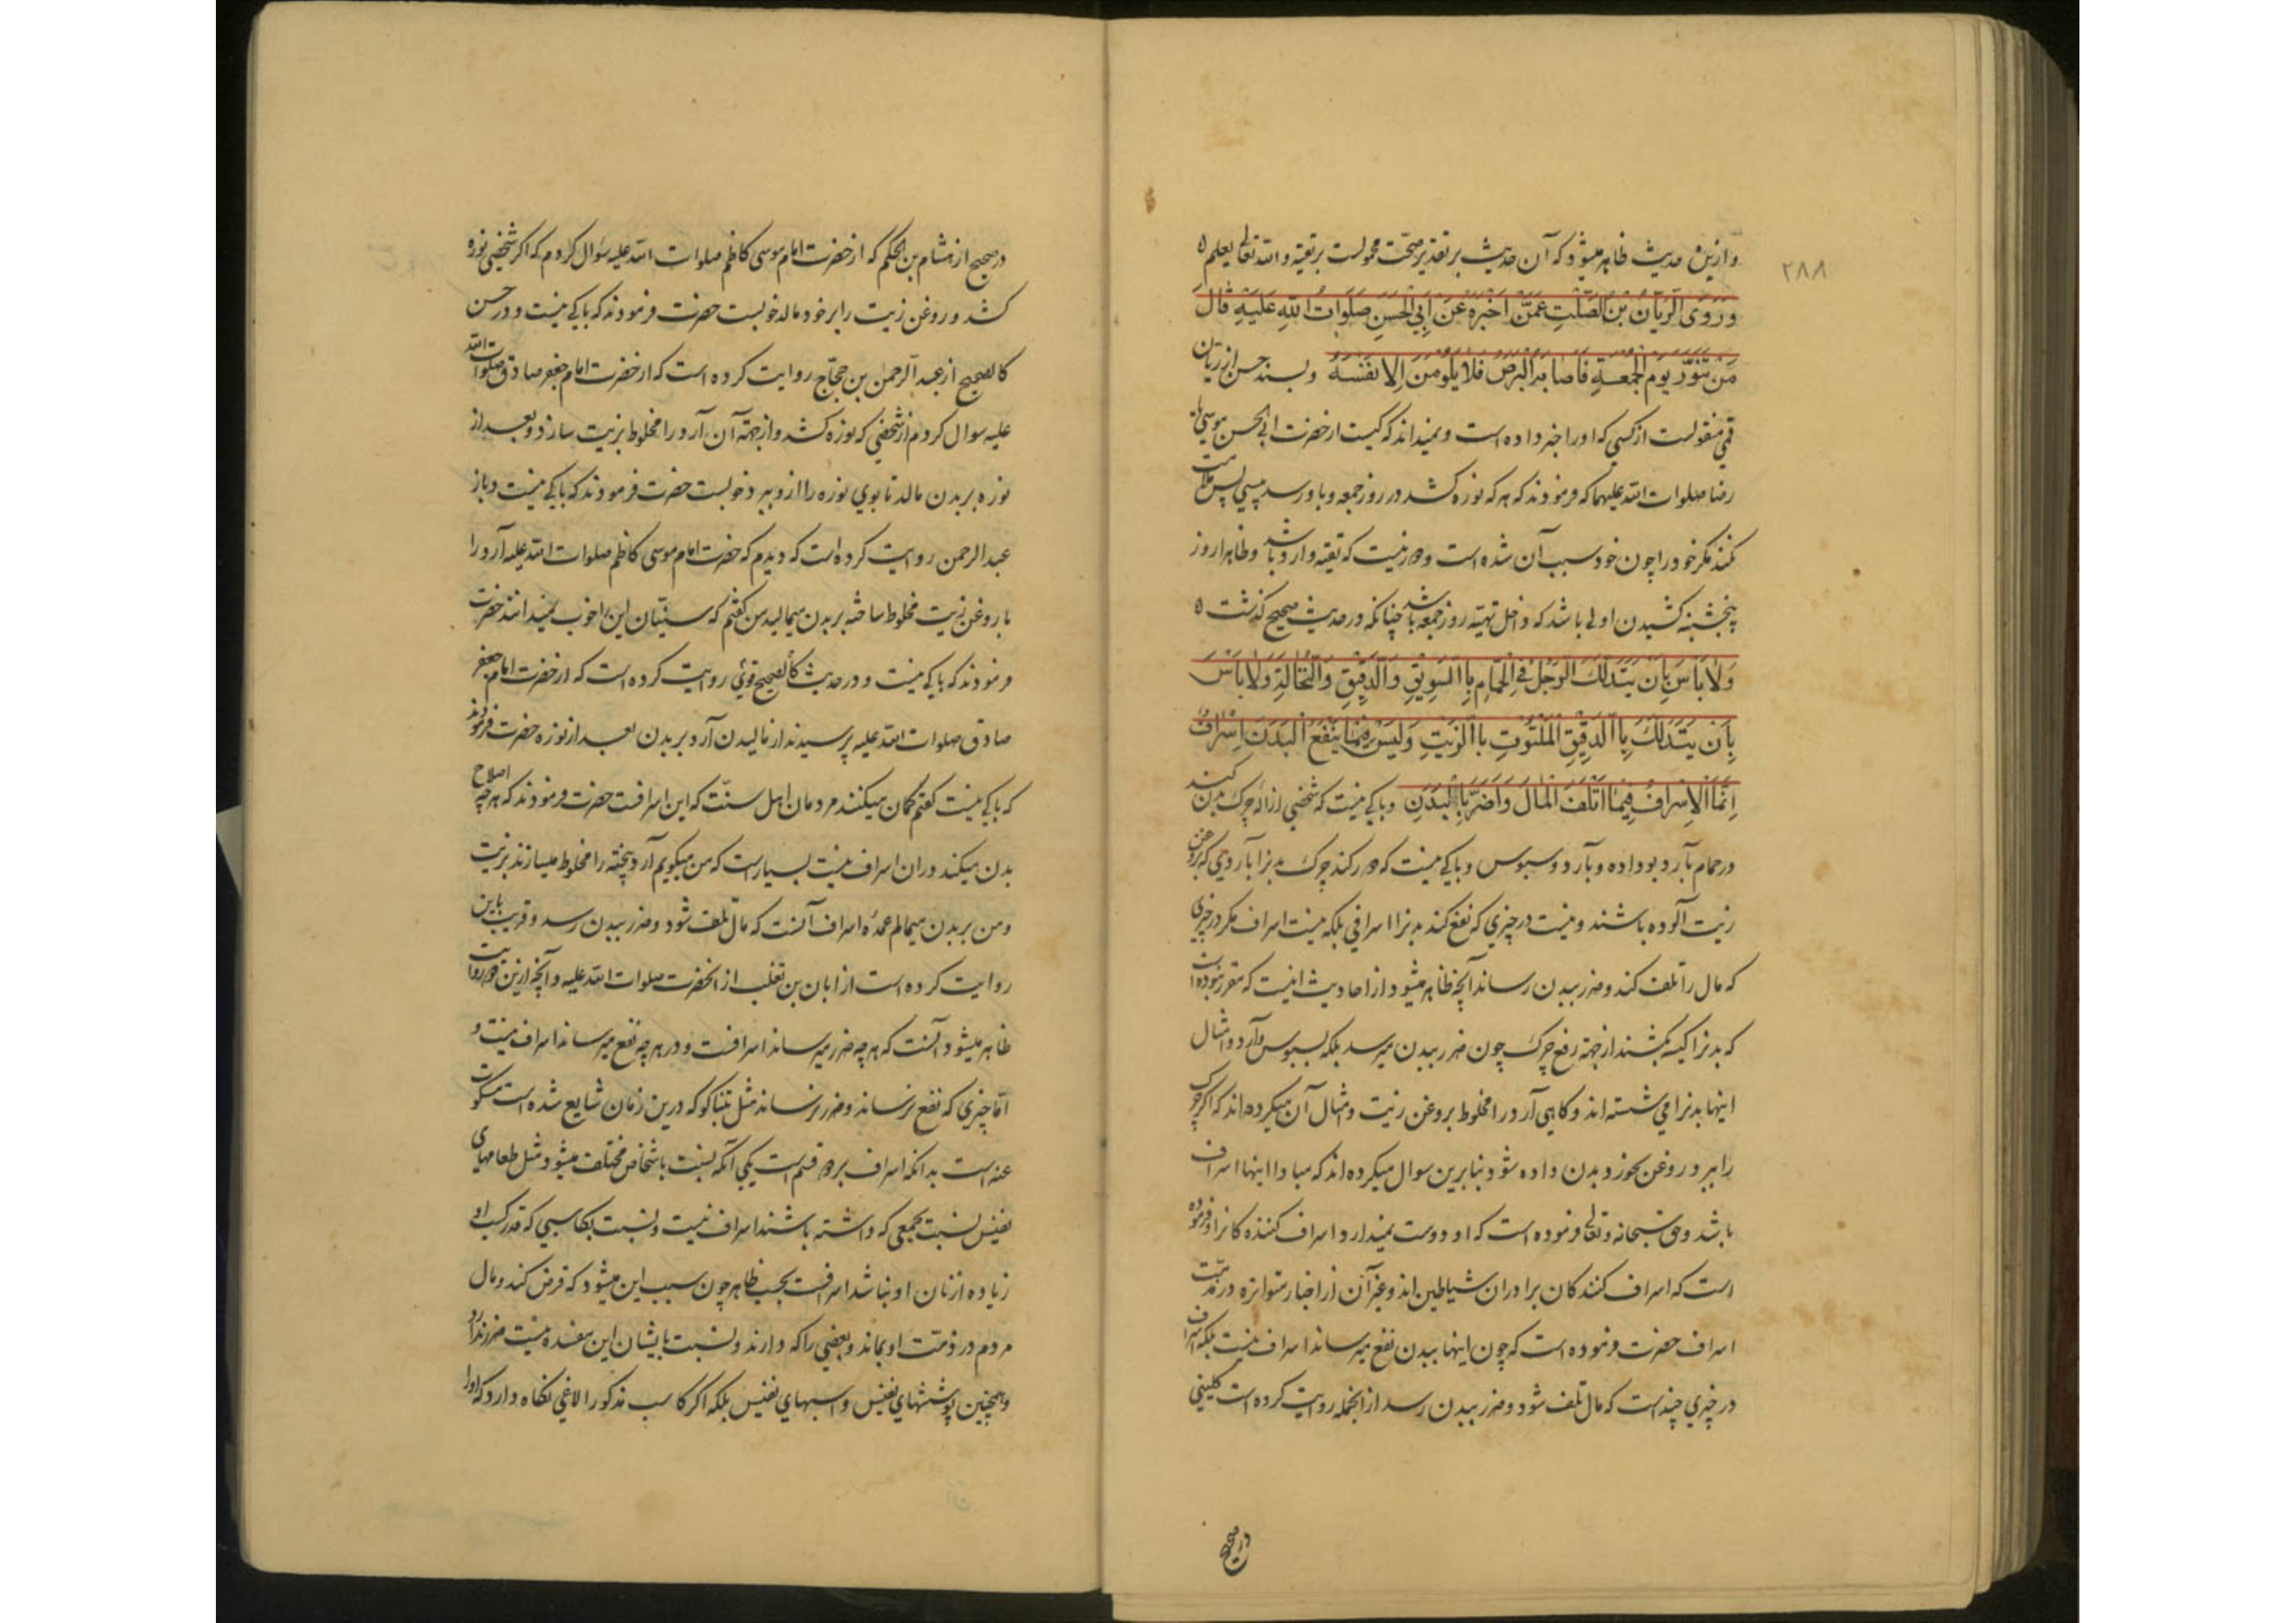 ۲۸۸
وازین حدیث ظاهر میشود که آن حدیث بر تقدیر صحت محمولست بر تقیه و الله تعالی یعلم ه
وَرَوَی الرَّیّانُ بْنُ الصَّلْتِ عَمَّنْ اَخْبَرَهُ عَنْ اَبِی الْحَسَنِ صَلَوَاتُ اللهِ عَلَیْهِ قَالَ
مَنْ تَنَوَّرَ یَوْمَ الْجُمعَةِ فَاَصابَهُ الْبَرَصُ فَلا یَلُومَنَّ اِلّا نَفْسَهُ وبسند حسن از ریان
قمی منقولست از کسی که او را خبر داده است و نمیداند که کیست از حضرت ابی الحسن موسی یا
رضا صلوات الله علیهما که فرمودند که هر که نوره کشد در روز جمعه و باو رسد پیسی پس ملامت
نکند مگر خود را چون خود سبب آن شده است و دور نیست که تقیه وارد باشد و ظاهرا روز
پنجشنبه کشیدن اولی باشد که داخل تهیه روز جمعه باشد چنانکه در حدیث صحیح گذشت ه
وَلا بَأسَ بِاَن یَتَدَلَّکَ الرَّجُلُ فِی الْحَمَّامِ بِالسَّوِیقِ وَالدَّقِیقِ وَالنُّخَالَةِ وَلا بَأسَ
بِاَن یَتَدَلَّکَ بِالدَّقِیقِ الْمَلْتُوتِ بِالزَّیْتِ وَلَیْسَ فِیمَا یَنْفَعُ الْبَدَنَ اِسْرَافٌ
اِنَّمَا الْاِسْرَافُ فِیمَا اَتْلَفَ الْمَالَ وَاَضَرَّ بِالْبَدَنِ وباکی نیست که شخصی ازاله چرک بدن کند
در حمام بآرد بو داده و بآرد و سبوس و باکی نیست که دور کند چرک بدنرا بآردی که بروغن
زیت آلوده باشند و نیست در چیزی که نفع کند بدنرا اسرافی بلکه نیست اسراف مگر در چیزی
که مال را تلف کند و ضرر ببدن رساند آنچه ظاهر میشود از احادیث اینست که مقرر نبوده است
که بدنرا کیسه بکشند از جهة رفع چرک چون ضرر ببدن میرسد بلکه بسبوس و آرد و امثال
اینها بدنرا می شسته اند و کاهی آرد را مخلوط بروغن زیت و امثال آن میکرده اند که اگر چرک
را ببرد روغن بخورد بدن داده شود بنابرین سوال میکرده اند که مبادا اینها اسراف
باشد وحق سبحانه و تعالی فرموده است که او دوست نمیدارد اسراف کننده کانرا و فرموده
است که اسراف کنندکان برادران شیاطین اند و غیر آن از اخبار متواتره در مذمت
اسراف حضرت فرموده است که چون اینها ببدن نفع میرساند اسراف نیست بلکه اسراف
در چیزی چند است که مال تلف شود و ضرر ببدن رسد از آنجمله روایت کرده است کلینی
در صحیح
در صحیح از هشام بن الحکم که از حضرت امام موسی کاظم صلوات الله علیه سؤال کردم که اگر شخصی نوره
کشد و روغن زیت را بر خود مالد خوبست حضرت فرمودند که باکی نیست و در حسن
کالصحیح از عبد الرحمن بن حجاج روایت کرده است که از حضرت امام جعفر صادق صلوات الله
علیه سوال کردم از شخصی که نوره کشد و از جهة آن آرد را مخلوط بزیت سازد و بعد از
نوره بر بدن مالد تا بوی نوره را ازو ببرد خوبست حضرت فرمودند که باکی نیست و باز
عبد الرحمن روایت کرده است که دیدم که حضرت امام موسی کاظم صلوات الله علیه آرد را
با روغن زیت مخلوط ساخته بر بدن میمالید من گفتم که سنیان این را خوب نمیدانند حضرت
فرمودند که باکی نیست و در حدیث کالصحیح قوی روایت کرده است که از حضرت امام جعفر
صادق صلوات الله علیه پرسیدند از مالیدن آرد بر بدن بعد از نوره حضرت فرمودند
که باکی نیست گفتم گمان میکنند مردمان اهل سنت که این اسرافست حضرت فرمودند که هر چه اصلاح
بدن میکند در ان اسراف نیست بسیار است که من میگویم آرد پخته را مخلوط میسازند بزیت
ومن بر بدن میمالم عمده اسراف آنست که مال تلف شود و ضرر ببدن رسد و قریب باین
روایت کرده است از ابان بن تغلب از آنحضرت صلوات الله علیه و آنچه ازین دو روایت
ظاهر میشود آنست که هر چه ضرر میرساند اسرافست و در هر چه نفع میرساند اسراف نیست و
اما چیزی که نفع نرساند و ضرر نرساند مثل تنباکو که درین زمان شایع شده است مسکوت
عنه است بدانکه اسراف بر دو قسم است یکی آنکه بنسبت باشخاص مختلف میشود مثل طعامهای
نفیس نسبت بجمعی که داشته باشند اسراف نیست و نسبت بکاسبی که قدر کسب او
زیاده از نان او نباشد اسرافست بحسب ظاهر چون سبب این میشود که قرض کند و مال
مردم در ذمت او بماند و بعضی را که دارند و نسبت بایشان این مفسده نیست ضرر ندارد
و همچنین پوششهای نفیس و اسبهای نفیس بلکه اگر کاسب مذکور الاغی نکاه دارد که او را